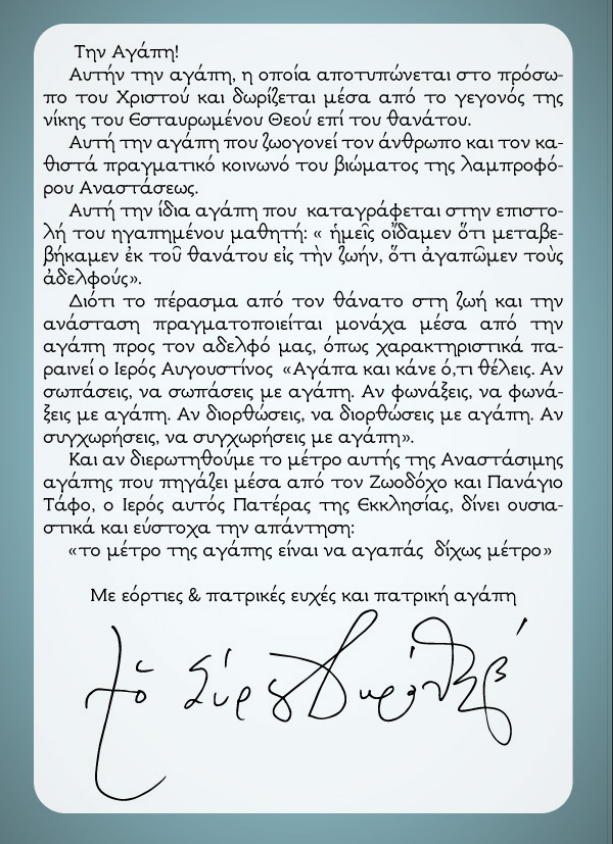 Την Αγάπη!
Αυτήν την αγάπη, η οποία αποτυπώνεται στο πρόσω-
πο του Χριστού και δωρίζεται μέσα από το γεγονός της
νίκης του Εσταυρωμένου Θεού επί του θανάτου.
Αυτή την αγάπη που ζωογονεί τον άνθρωπο και τον κα-
θιστά πραγματικό κοινωνό του βιώματος της λαμπροφό-
ρου Αναστάσεως.
Αυτή την ίδια αγάπη που καταγράφεται στην επιστο-
λή του ηγαπημένου μαθητή: « ἡμεῖς οἴδαμεν ὅτι μεταβε-
βήκαμεν ἐκ τοῦ θανάτου εἰς τὴν ζωήν, ὅτι ἀγαπῶμεν τοὺς
ἀδελφούς».
Διότι το πέρασμα από τον θάνατο στη ζωή και την
ανάσταση πραγματοποιείται μονάχα μέσα από την
αγάπη προς τον αδελφό μας, όπως χαρακτηριστικά πα-
ραινεί ο Ιερός Αυγουστίνος «Αγάπα και κάνε ό,τι θέλεις. Αν
σωπάσεις, να σωπάσεις με αγάπη. Αν φωνάξεις, να φωνά-
ξεις με αγάπη. Αν διορθώσεις, να διορθώσεις με αγάπη. Αν
συγχωρήσεις, να συγχωρήσεις με αγάπη».
Και αν διερωτηθούμε το μέτρο αυτής της Αναστάσιμης
αγάπης που πηγάζει μέσα από τον Ζωοδόχο και Πανάγιο
Τάφο, ο Ιερός αυτός Πατέρας της Εκκλησίας, δίνει ουσια-
στικά και εύστοχα την απάντηση:
«το μέτρο της αγάπης είναι να αγαπάς δίχως μέτρο»
Με εόρτιες & πατρικές ευχές και πατρική αγάπη